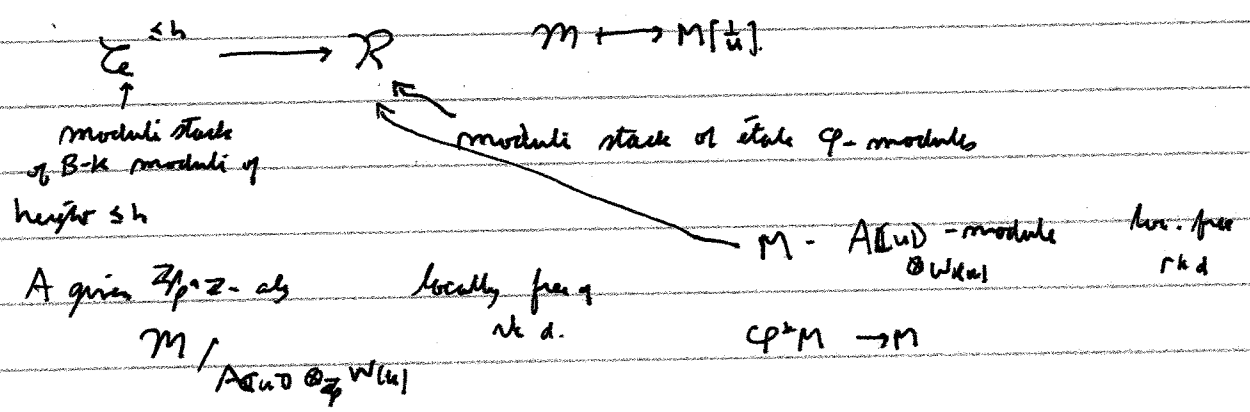 𝒞^{≤h} ⟶ ℛ 𝔐 ⟼ M[1/u].
↑
moduli stack
of B-K moduli of
height ≤ h
moduli stack of étale φ-modules
M - A[[u]]-module loc. free
⊗ W(k) rk d
A given Z/p^a Z-alg locally free of
rk d.
𝔐 / A[[u]] ⊗_{Z_p} W(k)
φ*M → M